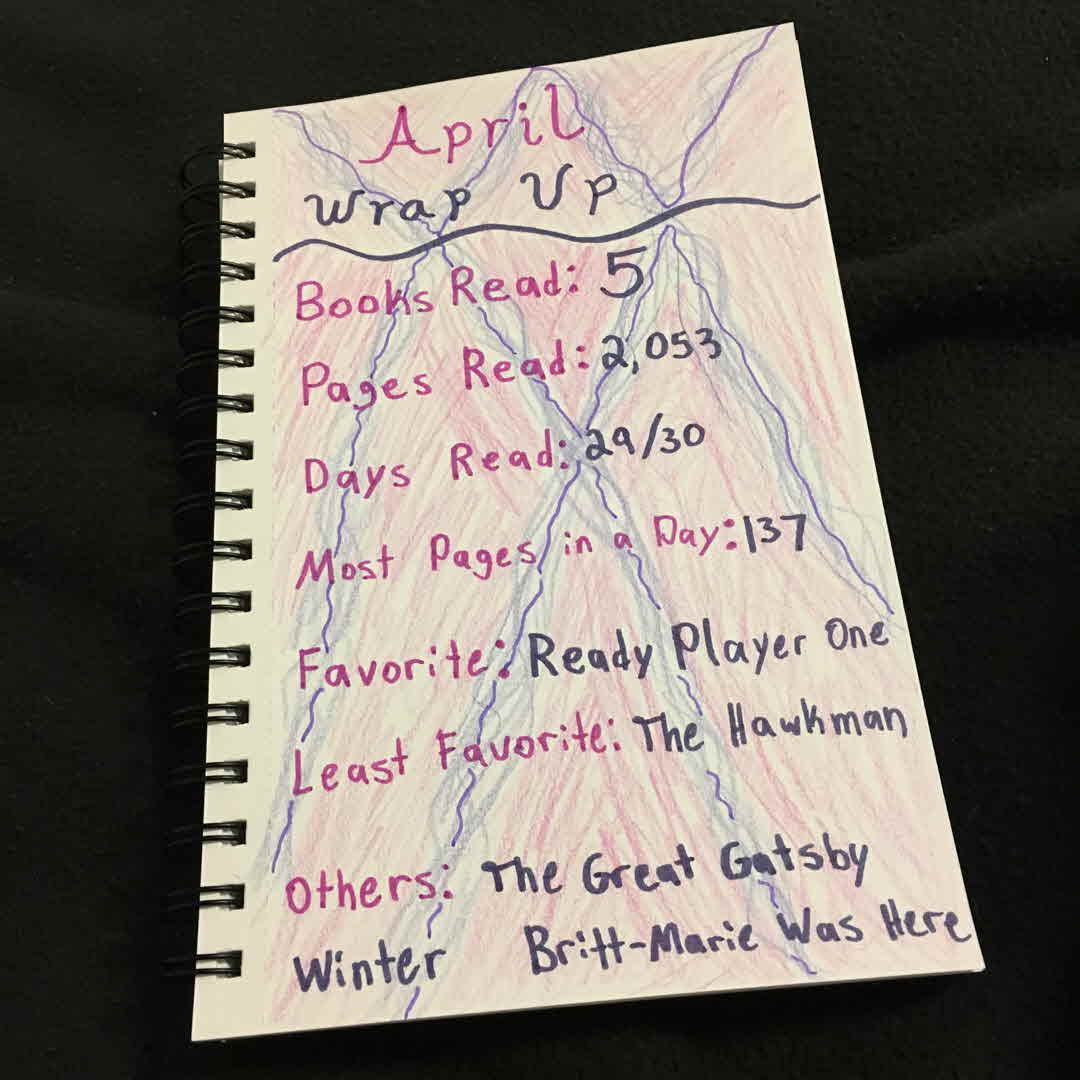 April
Wrap Up
Books Read: 5
Pages Read: 2,053
Days Read: 29/30
Most Pages in a Day: 137
Favorite: Ready Player One
Least Favorite: The Hawkman
Others: The Great Gatsby
Winter Britt-Marie Was Here